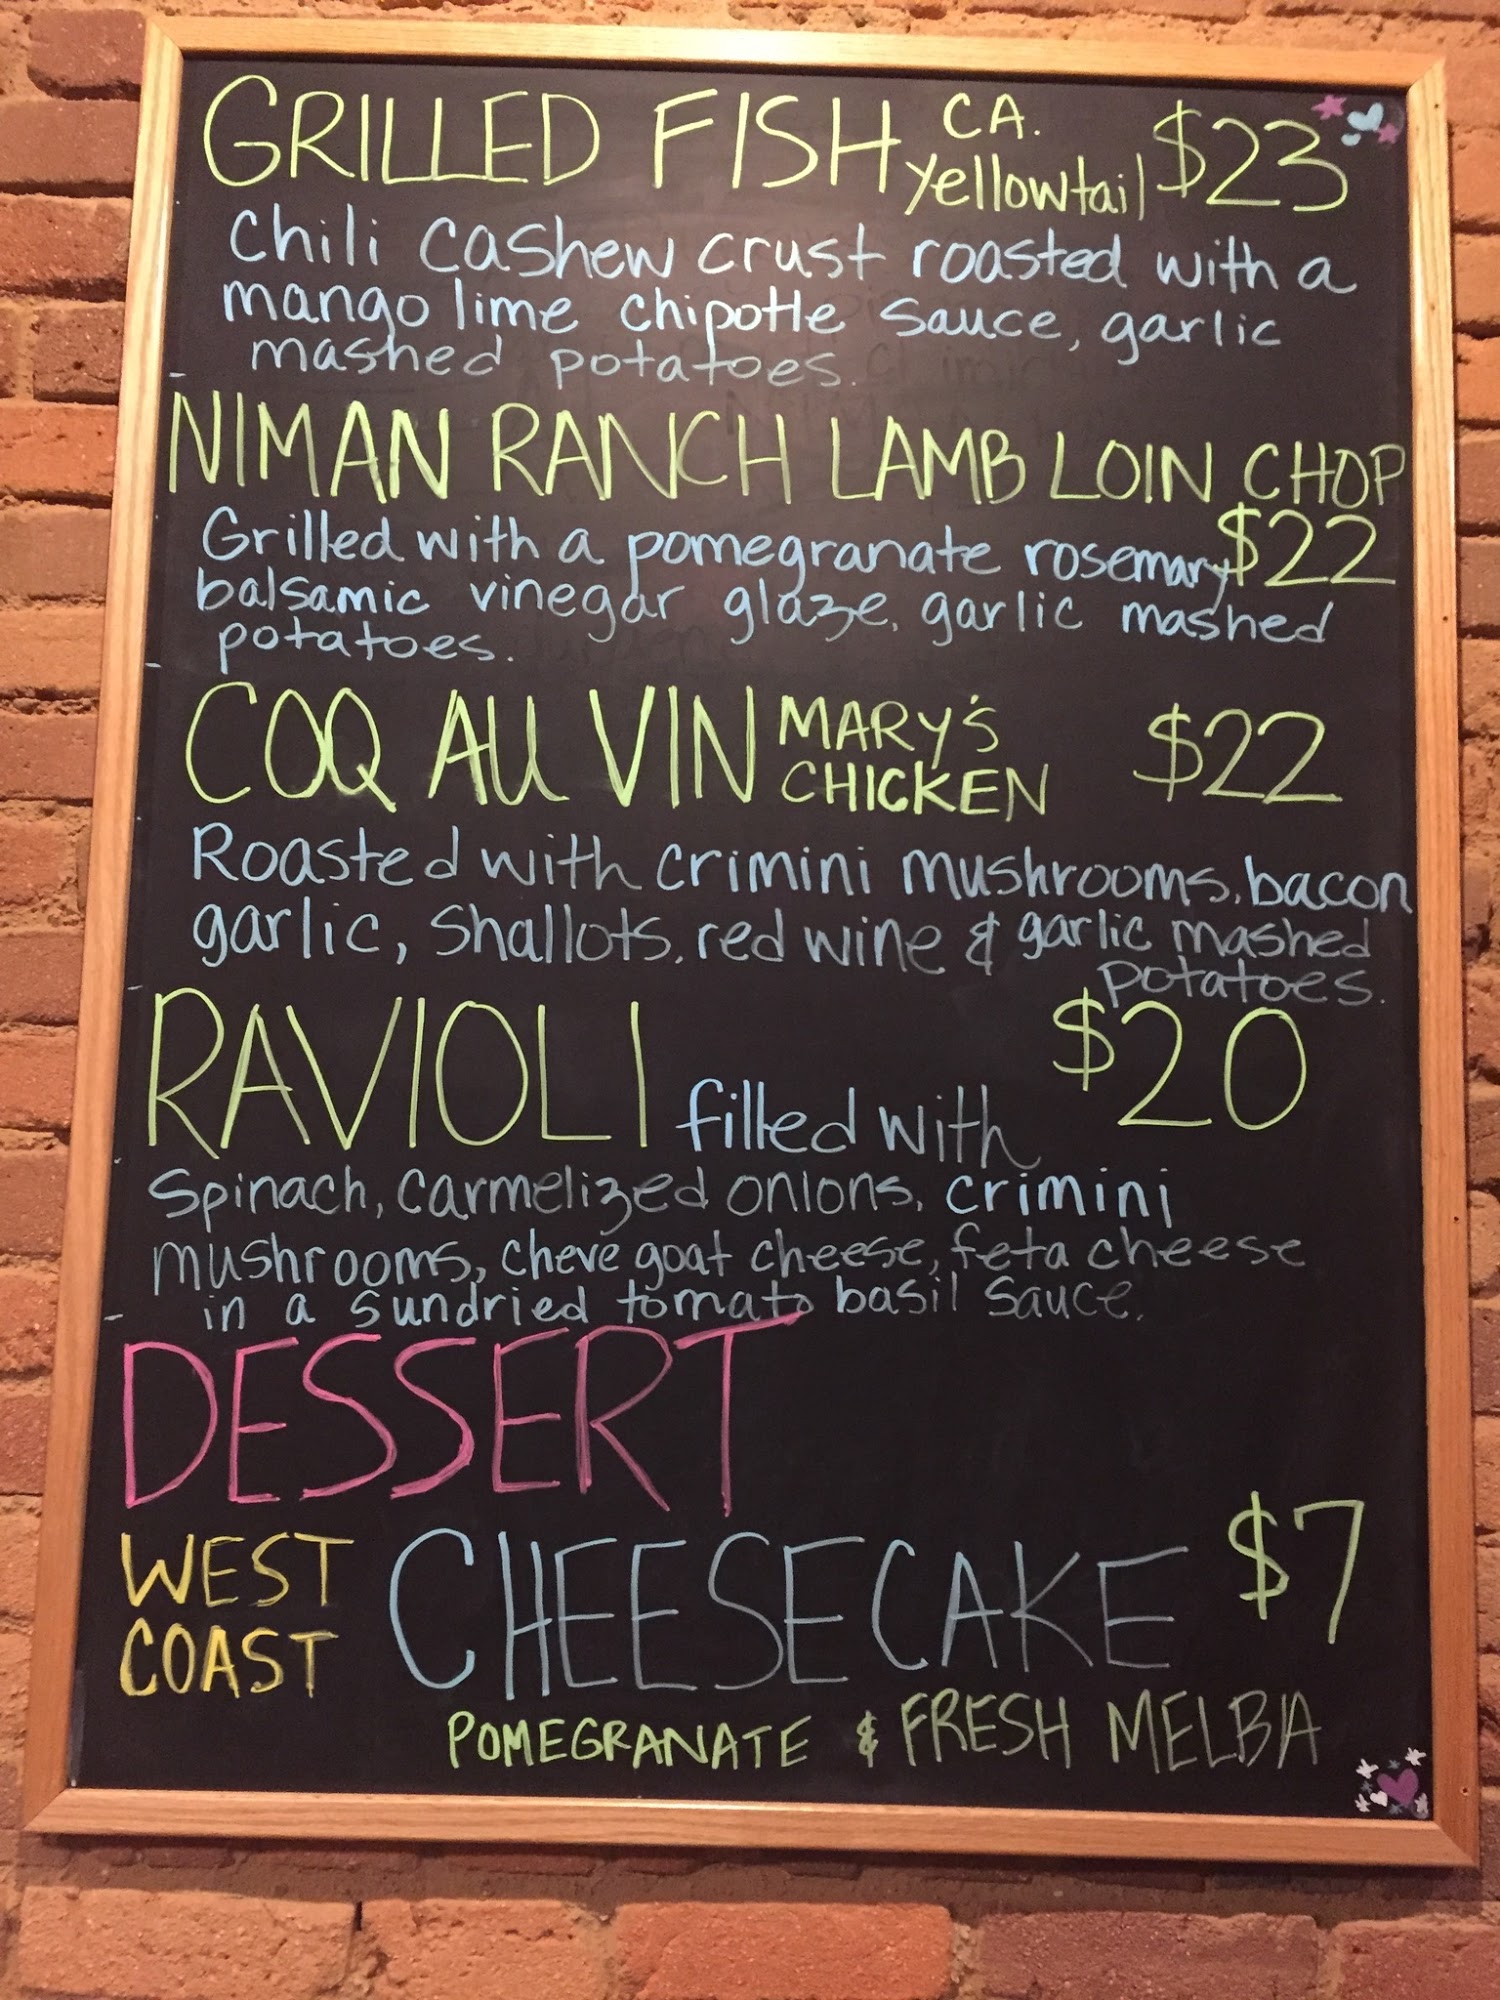 GRILLED FISH CA. Yellowtail $23
Chili Cashew crust roasted with a
mango lime chipotle sauce, garlic
mashed potatoes.
NIMAN RANCH LAMB LOIN CHOP
Grilled with a pomegranate rosemary $22
balsamic vinegar glaze, garlic mashed
potatoes.
COQ AU VIN MARY'S CHICKEN $22
Roasted with crimini mushrooms, bacon
garlic, shallots, red wine & garlic mashed
potatoes.
RAVIOLI filled with $20
Spinach, carmelized onions, crimini
mushrooms, cheve goat cheese, feta cheese
in a sundried tomato basil sauce.
DESSERT
WEST COAST CHEESECAKE $7
POMEGRANATE & FRESH MELBA